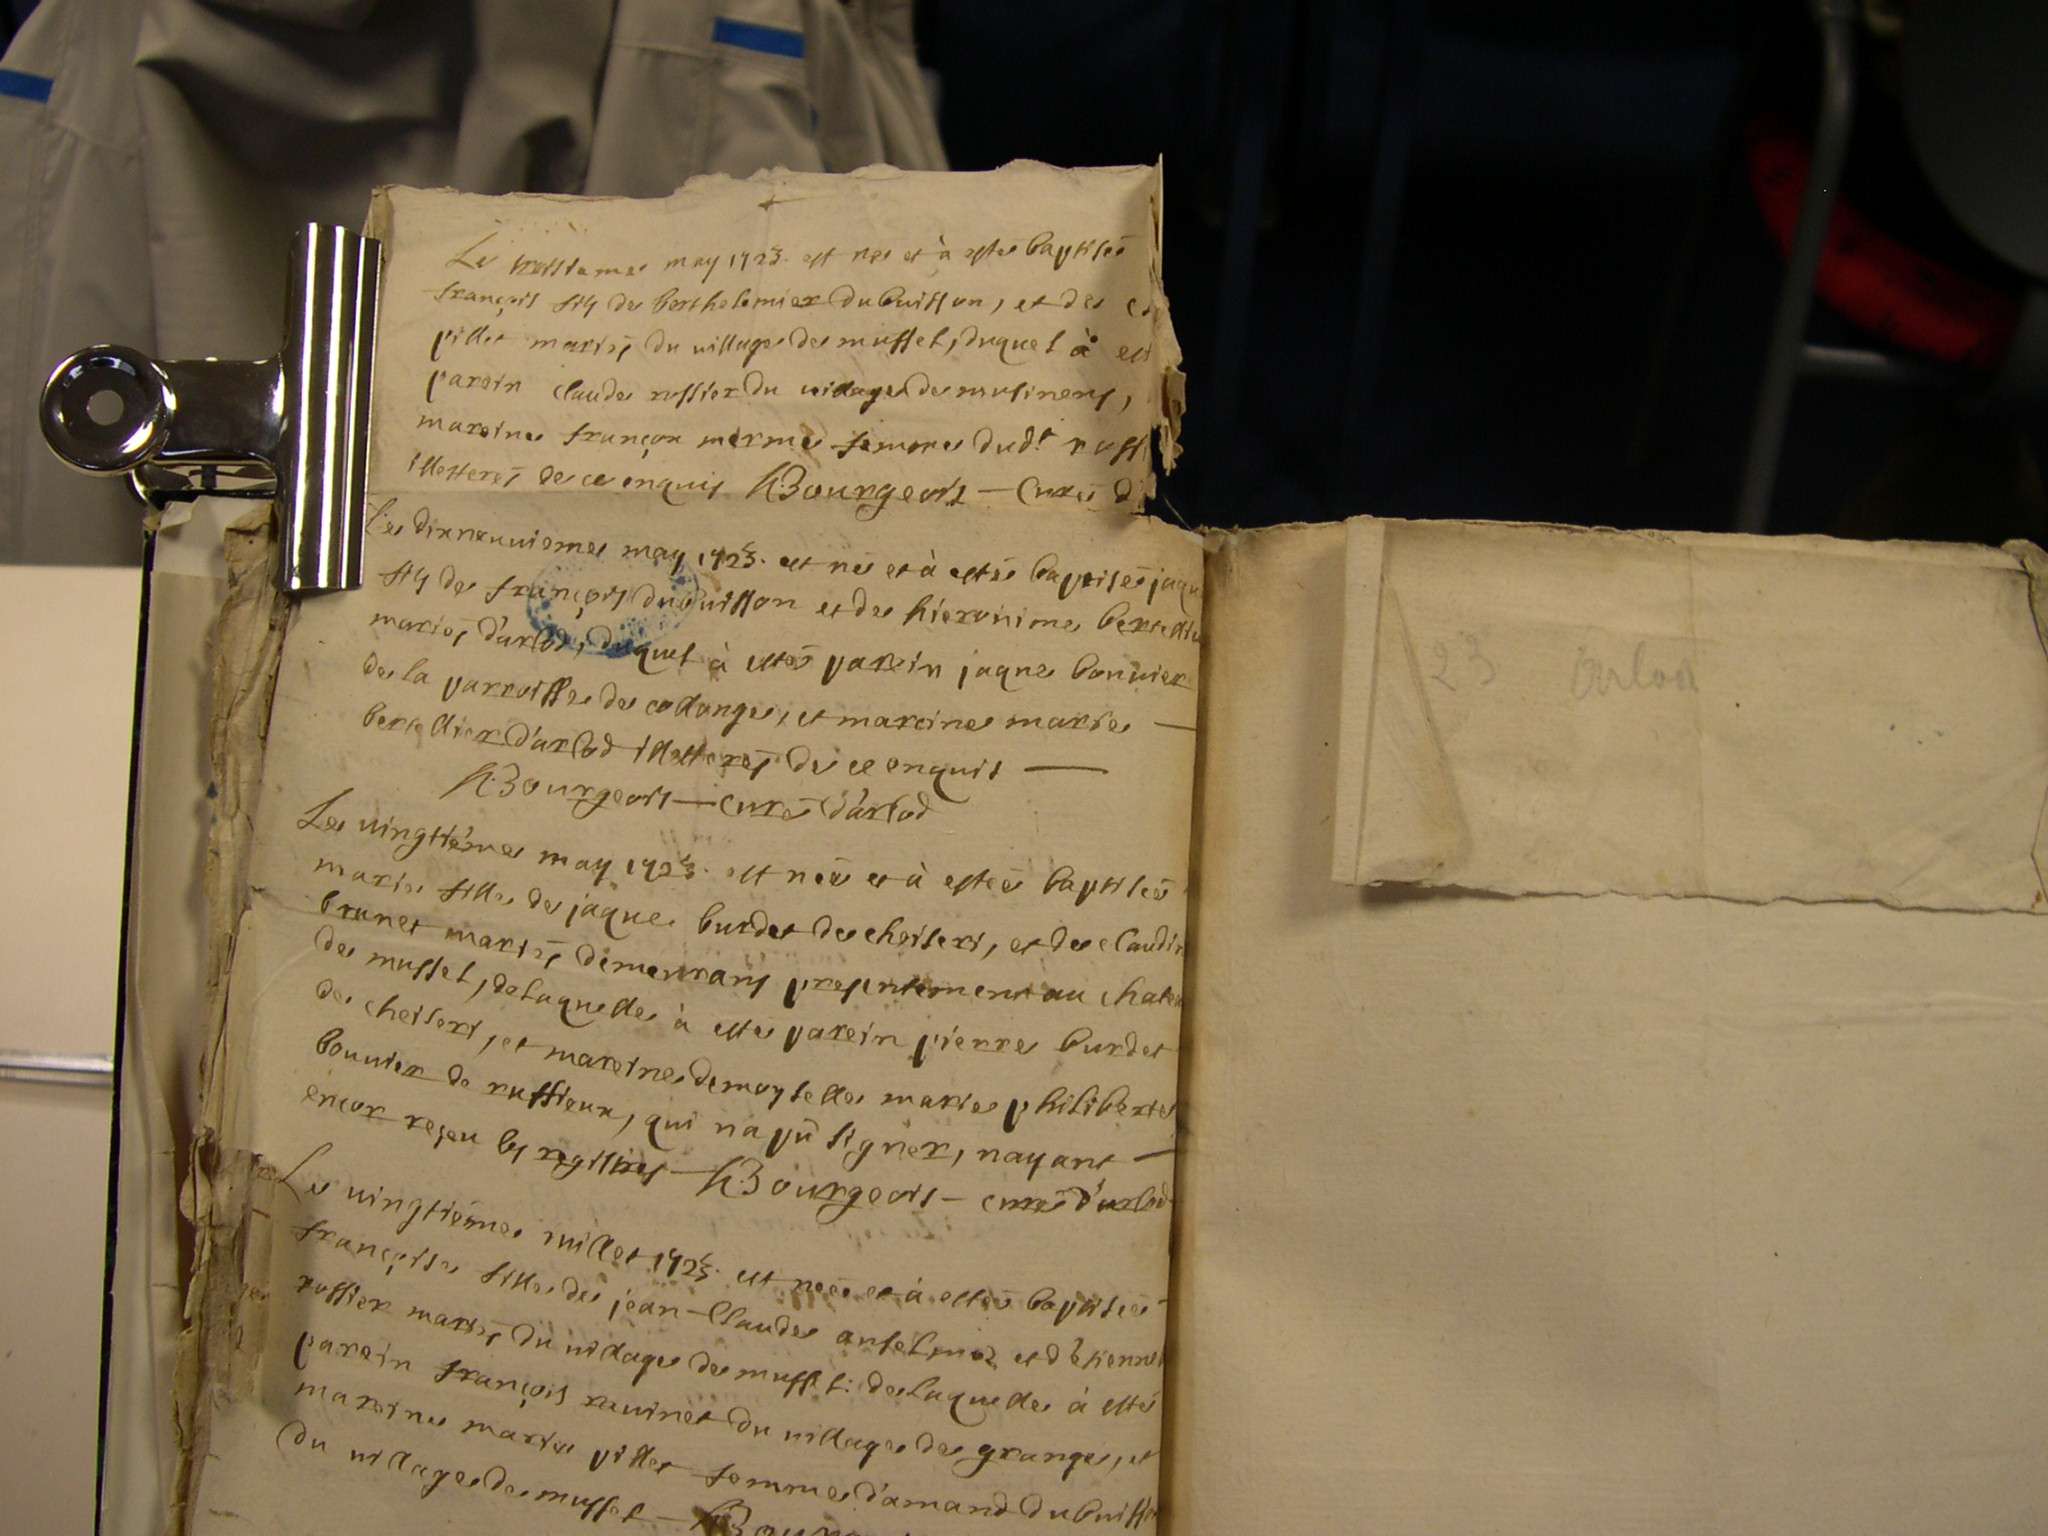 Le troisieme may 1723. est né et à esté baptisé
françois fils de berthelemier Dubuisson, et de
pillet mariés du village de mussel, duquel à est
parein claude rossier du village de musinens,
mareine françoise merme femme dud.t ross
illetterés de ce enquis h:Bourgeois — Curé d
Le dixneuvieme may 1723. est né et à esté baptisé jaqu
fils de françois dubuisson et de hieronime bertellie
mariés d'arlod, duquel à esté parein jaque bouvier
de la parroisse de collonge, et mareine marie —
bertellier d'arlod illetterés de ce enquis —
h:Bourgeois — curé d'arlod
Le vingtiéme may 1723. est née et à estée baptisée
marie fille de jaque burdet de cheiseri, et de claudin
brunet mariés demeurans presentement au chatea
de mussel, de laquelle à esté parein pierre burdet
de cheiseri, et mareine demoyselle marie philiberte
bouvier de ruffieux, qui n'a pû signer, nayant —
encor reçeu les registres — h:Bourgeois — curé d'arlod
Le vingtiéme juillet 1723. est née et à estée baptisée
françoise fille de jean-Claude anselmoz et d'étienne
rossier mariés du village de mussel: de laquelle à esté
parein françois ravinet du village de grange, et
mareine marie pillet femme d'amand dubuisso
du village de mussel — h:Bour
23 Arlod